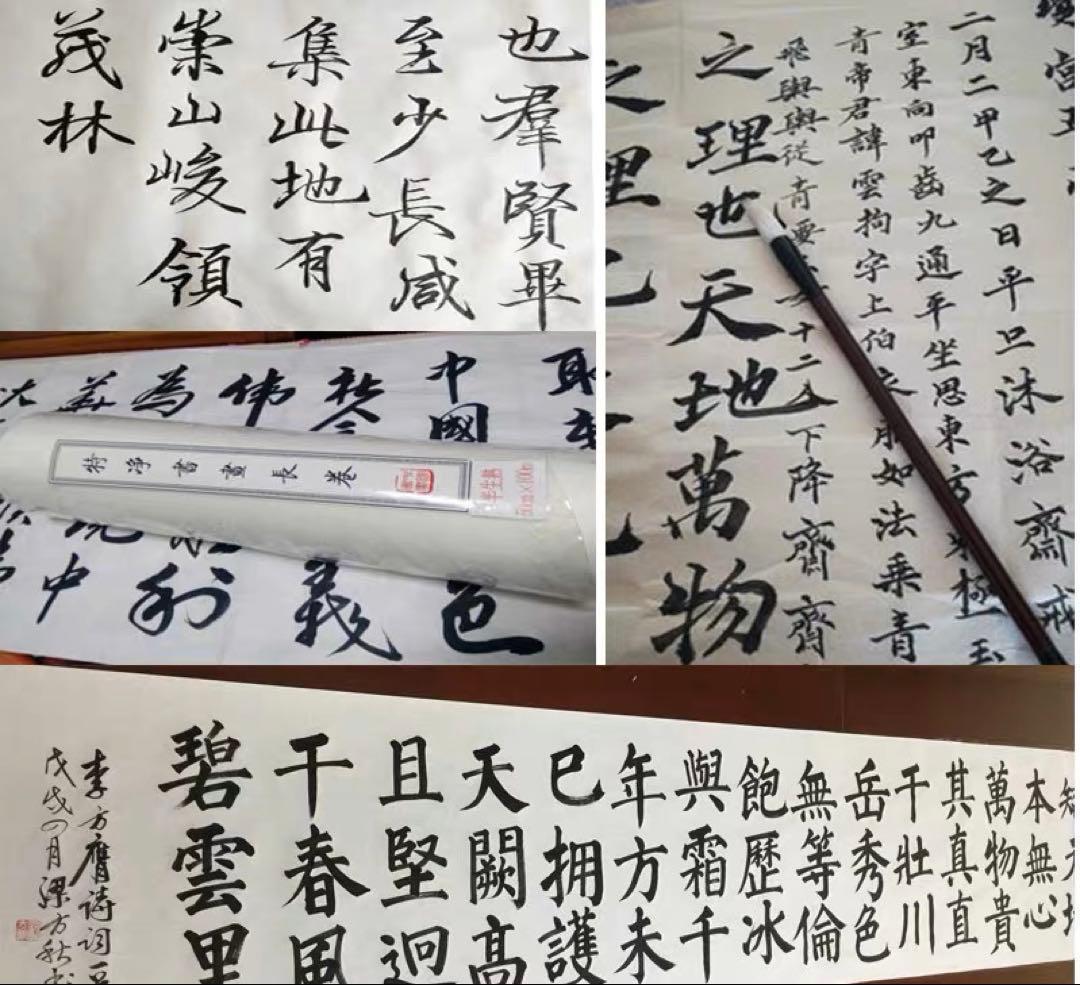 也羣賢畢
至少長咸
集此地有
崇山峻領
茂林
之理也天地萬物
二月二甲乙之日平旦沐浴齋戒
室東向叩齒九通平坐思東方
青帝君諱雲拘字上伯衣服如法乘青
飛輿從青要玉女十二人下降齋
中國
偉
為
色
義
利
中
特净書畫長卷
半生熟
本無心
萬物貴
其真直
干壯川
岳秀色
無等倫
飽歷冰
與霜千
年方未
已拥護
天闕高
且堅迴
干春風
碧雲里
李方膺詩詞
戊戌四月梁方秋书